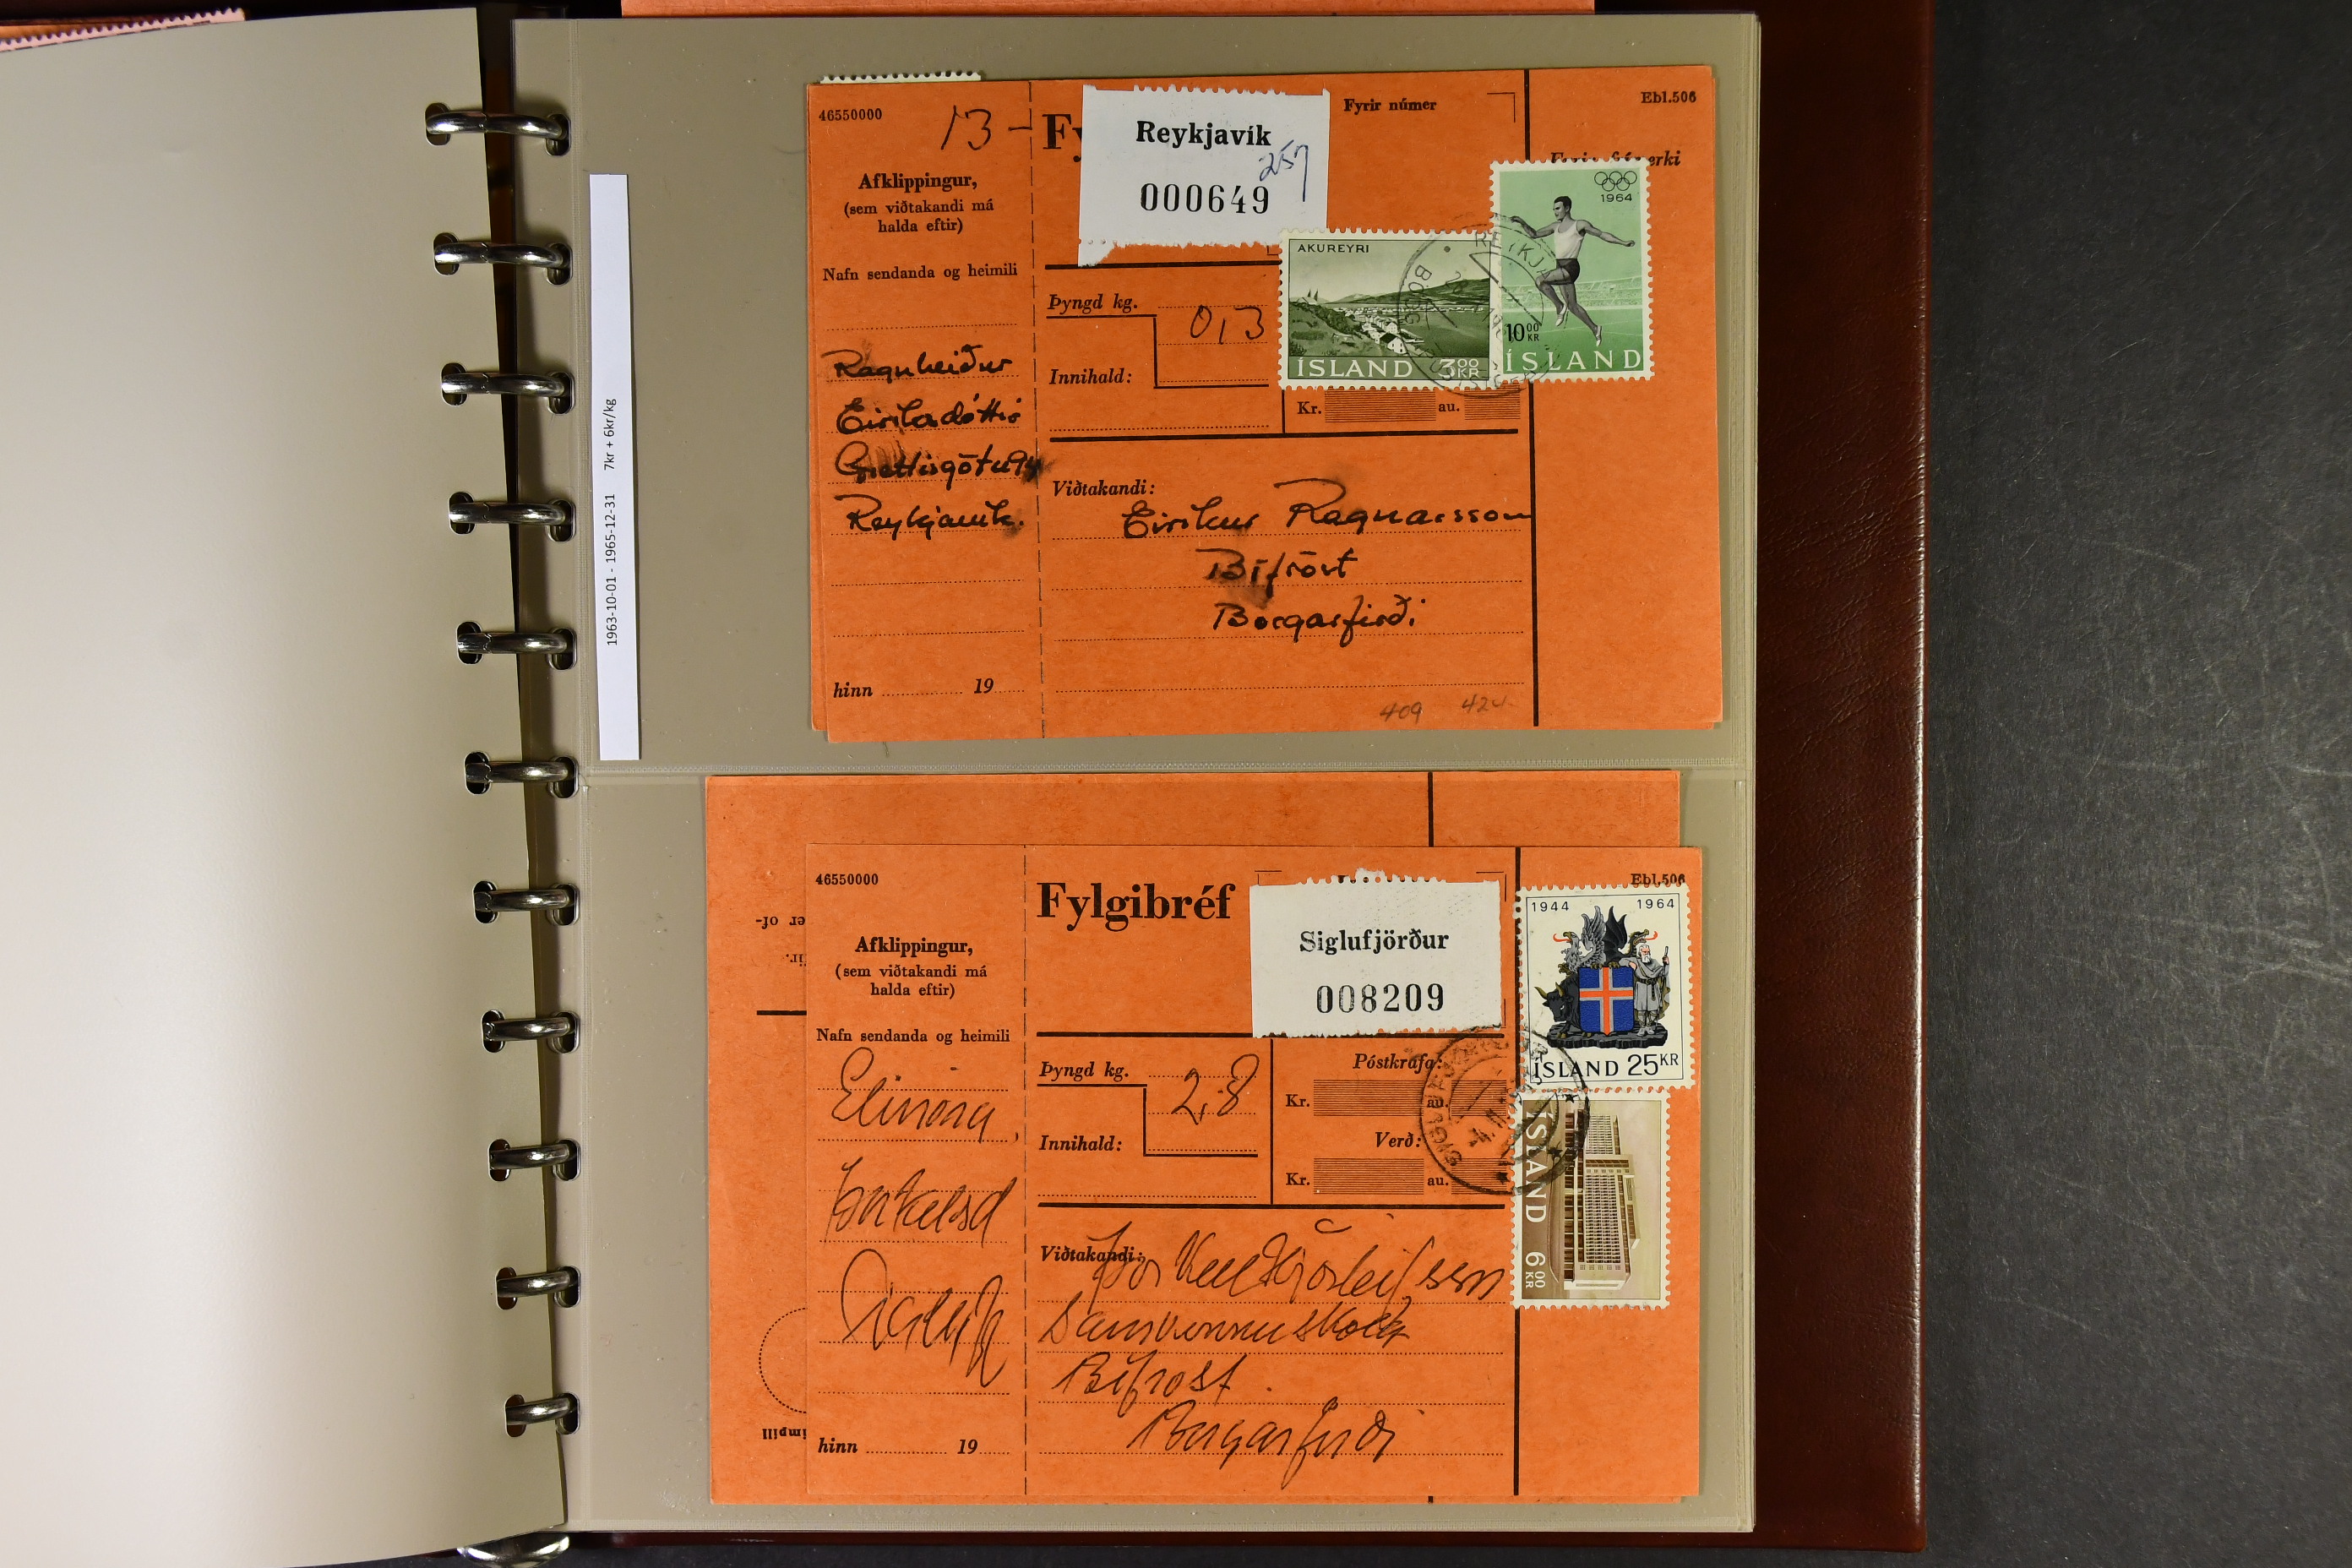 1963-10-01 - 1965-12-31 7kr + 6kr/kg
46550000
13 -
Fy
Reykjavík
257
000649
Fyrir númer
Ebl.506
Afklippingur,
(sem viðtakandi má
halda eftir)
Nafn sendanda og heimili
Ragnheiður
Eiríksdóttir
Grettisgötu
Reykjavík.
hinn 19
Þyngd kg.
0,3
Innihald:
Kr. au.
AKUREYRI
ÍSLAND 300 KR
1964
10 00 KR
ÍSLAND
Viðtakandi:
Eiríkur Ragnarsson
Bifröst
Borgarfirði
409 424
46550000
Fylgibréf
Siglufjörður
008209
Ebl.506
Afklippingur,
(sem viðtakandi má
halda eftir)
Nafn sendanda og heimili
hinn 19
Þyngd kg.
2,8
Innihald:
Póstkrafa:
Kr. au.
Verð:
Kr. au.
1944 1964
ÍSLAND 25 KR
ÍSLAND 6 00 KR
Viðtakandi:
Bifröst
Borgarfirði